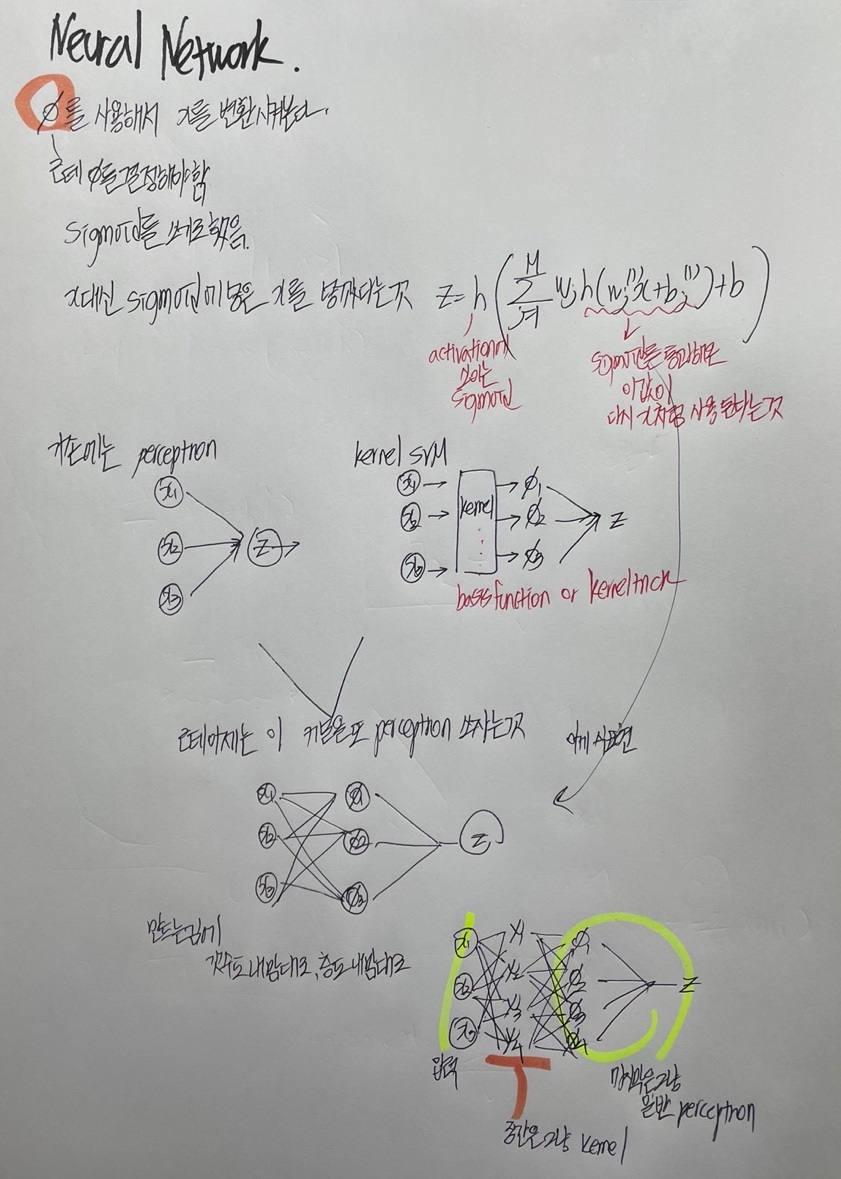 Neural Network.
ø를 사용해서 x를 변환시켜본다.
근데 ø를 결정해야함
sigmoid를 쓰기로 했음.
x대신 sigmoid에 넣은 x를 넣겠다는것
z = h( M Σ j=1 wj h(wj⁽¹⁾x+bj⁽¹⁾)+b )
activation에
쓰이는
sigmoid
sigmoid를 통과해온
이값이
다시 x처럼 사용된다는것
기존에는 perceptron
x1
x2
x3
z
kernel SVM
x1
x2
x3
kernel
ø1
ø2
ø3
z
basis function or kernel trick
근데이제는 이 커널을 또 perceptron 쓰자는것
x1
x2
x3
ø1
ø2
ø3
z
만드는김에
갯수도 내맘대로, 층도 내맘대로
x1
x2
x3
y1
y2
y3
y4
ø1
ø2
ø3
ø4
z
입력
중간은 그냥 kernel
마지막은 그냥
일반 perceptron